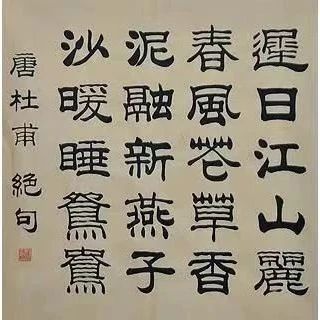 遲日江山麗
春風芲草香
泥融新燕子
沙暖睡鴛鴦
唐杜甫絕句